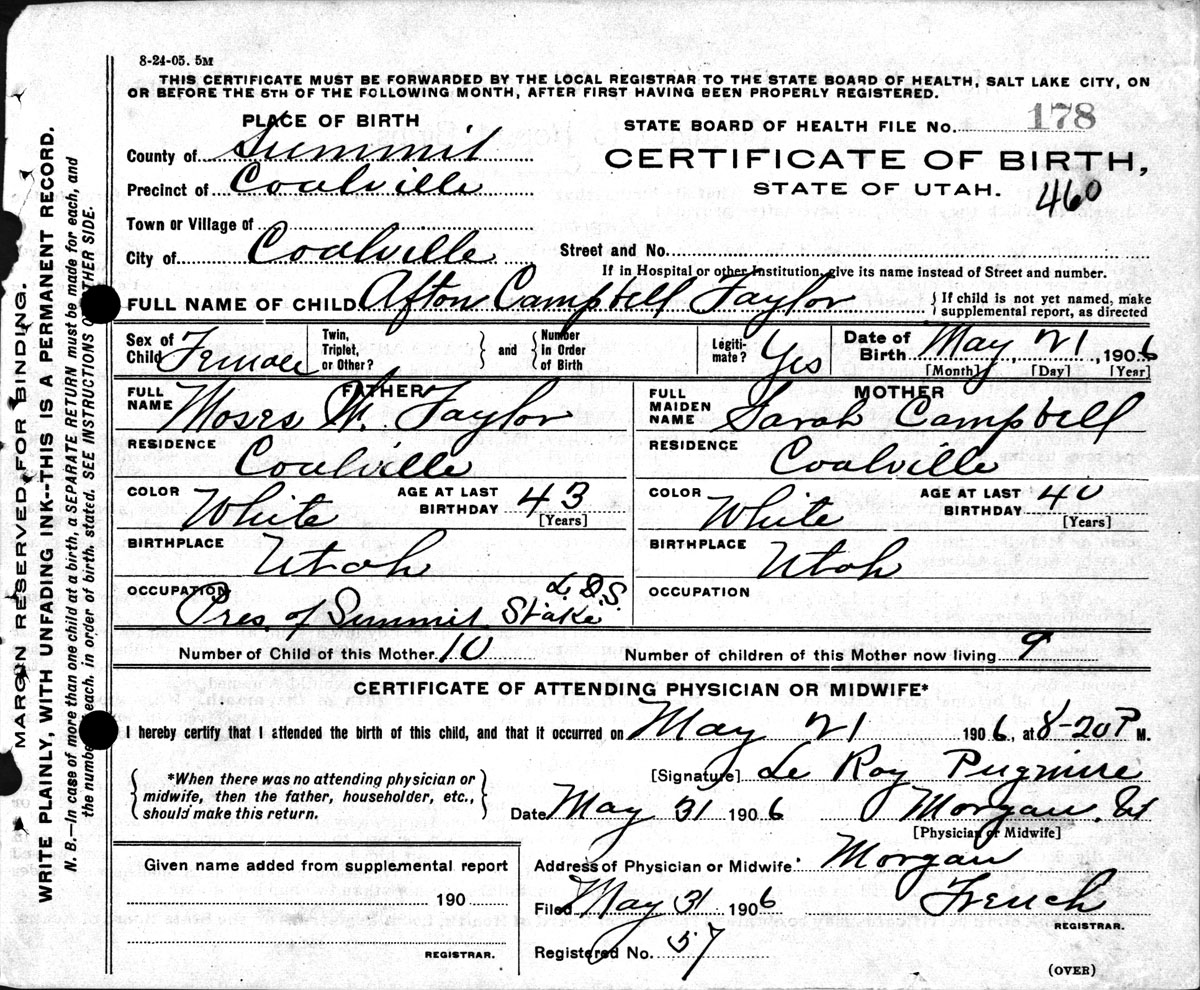 8-24-05. 5M
THIS CERTIFICATE MUST BE FORWARDED BY THE LOCAL REGISTRAR TO THE STATE BOARD OF HEALTH, SALT LAKE CITY, ON
OR BEFORE THE 5TH OF THE FOLLOWING MONTH, AFTER FIRST HAVING BEEN PROPERLY REGISTERED.
PLACE OF BIRTH
STATE BOARD OF HEALTH FILE No. 178
County of Summit
CERTIFICATE OF BIRTH,
Precinct of Coalville
STATE OF UTAH. 460
Town or Village of
City of Coalville
Street and No.
If in Hospital or other Institution, give its name instead of Street and number.
FULL NAME OF CHILD Afton Campbell Taylor } If child is not yet named, make supplemental report, as directed
Sex of Child Female Twin, Triplet, or Other? } and { Number in Order of Birth Legitimate? Yes Date of Birth May 21, 1906
[Month] [Day] [Year]
FATHER
FULL NAME Moses W. Taylor
RESIDENCE Coalville
COLOR White AGE AT LAST BIRTHDAY 43
[Years]
BIRTHPLACE Utah
OCCUPATION Pres. of Summit Stake L.D.S.
MOTHER
FULL MAIDEN NAME Sarah Campbell
RESIDENCE Coalville
COLOR White AGE AT LAST BIRTHDAY 40
[Years]
BIRTHPLACE Utah
OCCUPATION
Number of Child of this Mother 10 Number of children of this Mother now living 9
CERTIFICATE OF ATTENDING PHYSICIAN OR MIDWIFE*
I hereby certify that I attended the birth of this child, and that it occurred on May 21 1906, at 8-20 P M.
*When there was no attending physician or
midwife, then the father, householder, etc.,
should make this return.
[Signature] Le Roy Pugmire
Date May 31 1906 Morgan, Ut
[Physician or Midwife]
Given name added from supplemental report
190
REGISTRAR.
Address of Physician or Midwife: Morgan
Filed May 31 1906 French
REGISTRAR.
Registered No. 57
(OVER)
MARGIN RESERVED FOR BINDING.
WRITE PLAINLY, WITH UNFADING INK--THIS IS A PERMANENT RECORD.
N. B.—In case of more than one child at a birth, a SEPARATE RETURN must be made for each, and
the number each, in order of birth, stated. SEE INSTRUCTIONS OTHER SIDE.